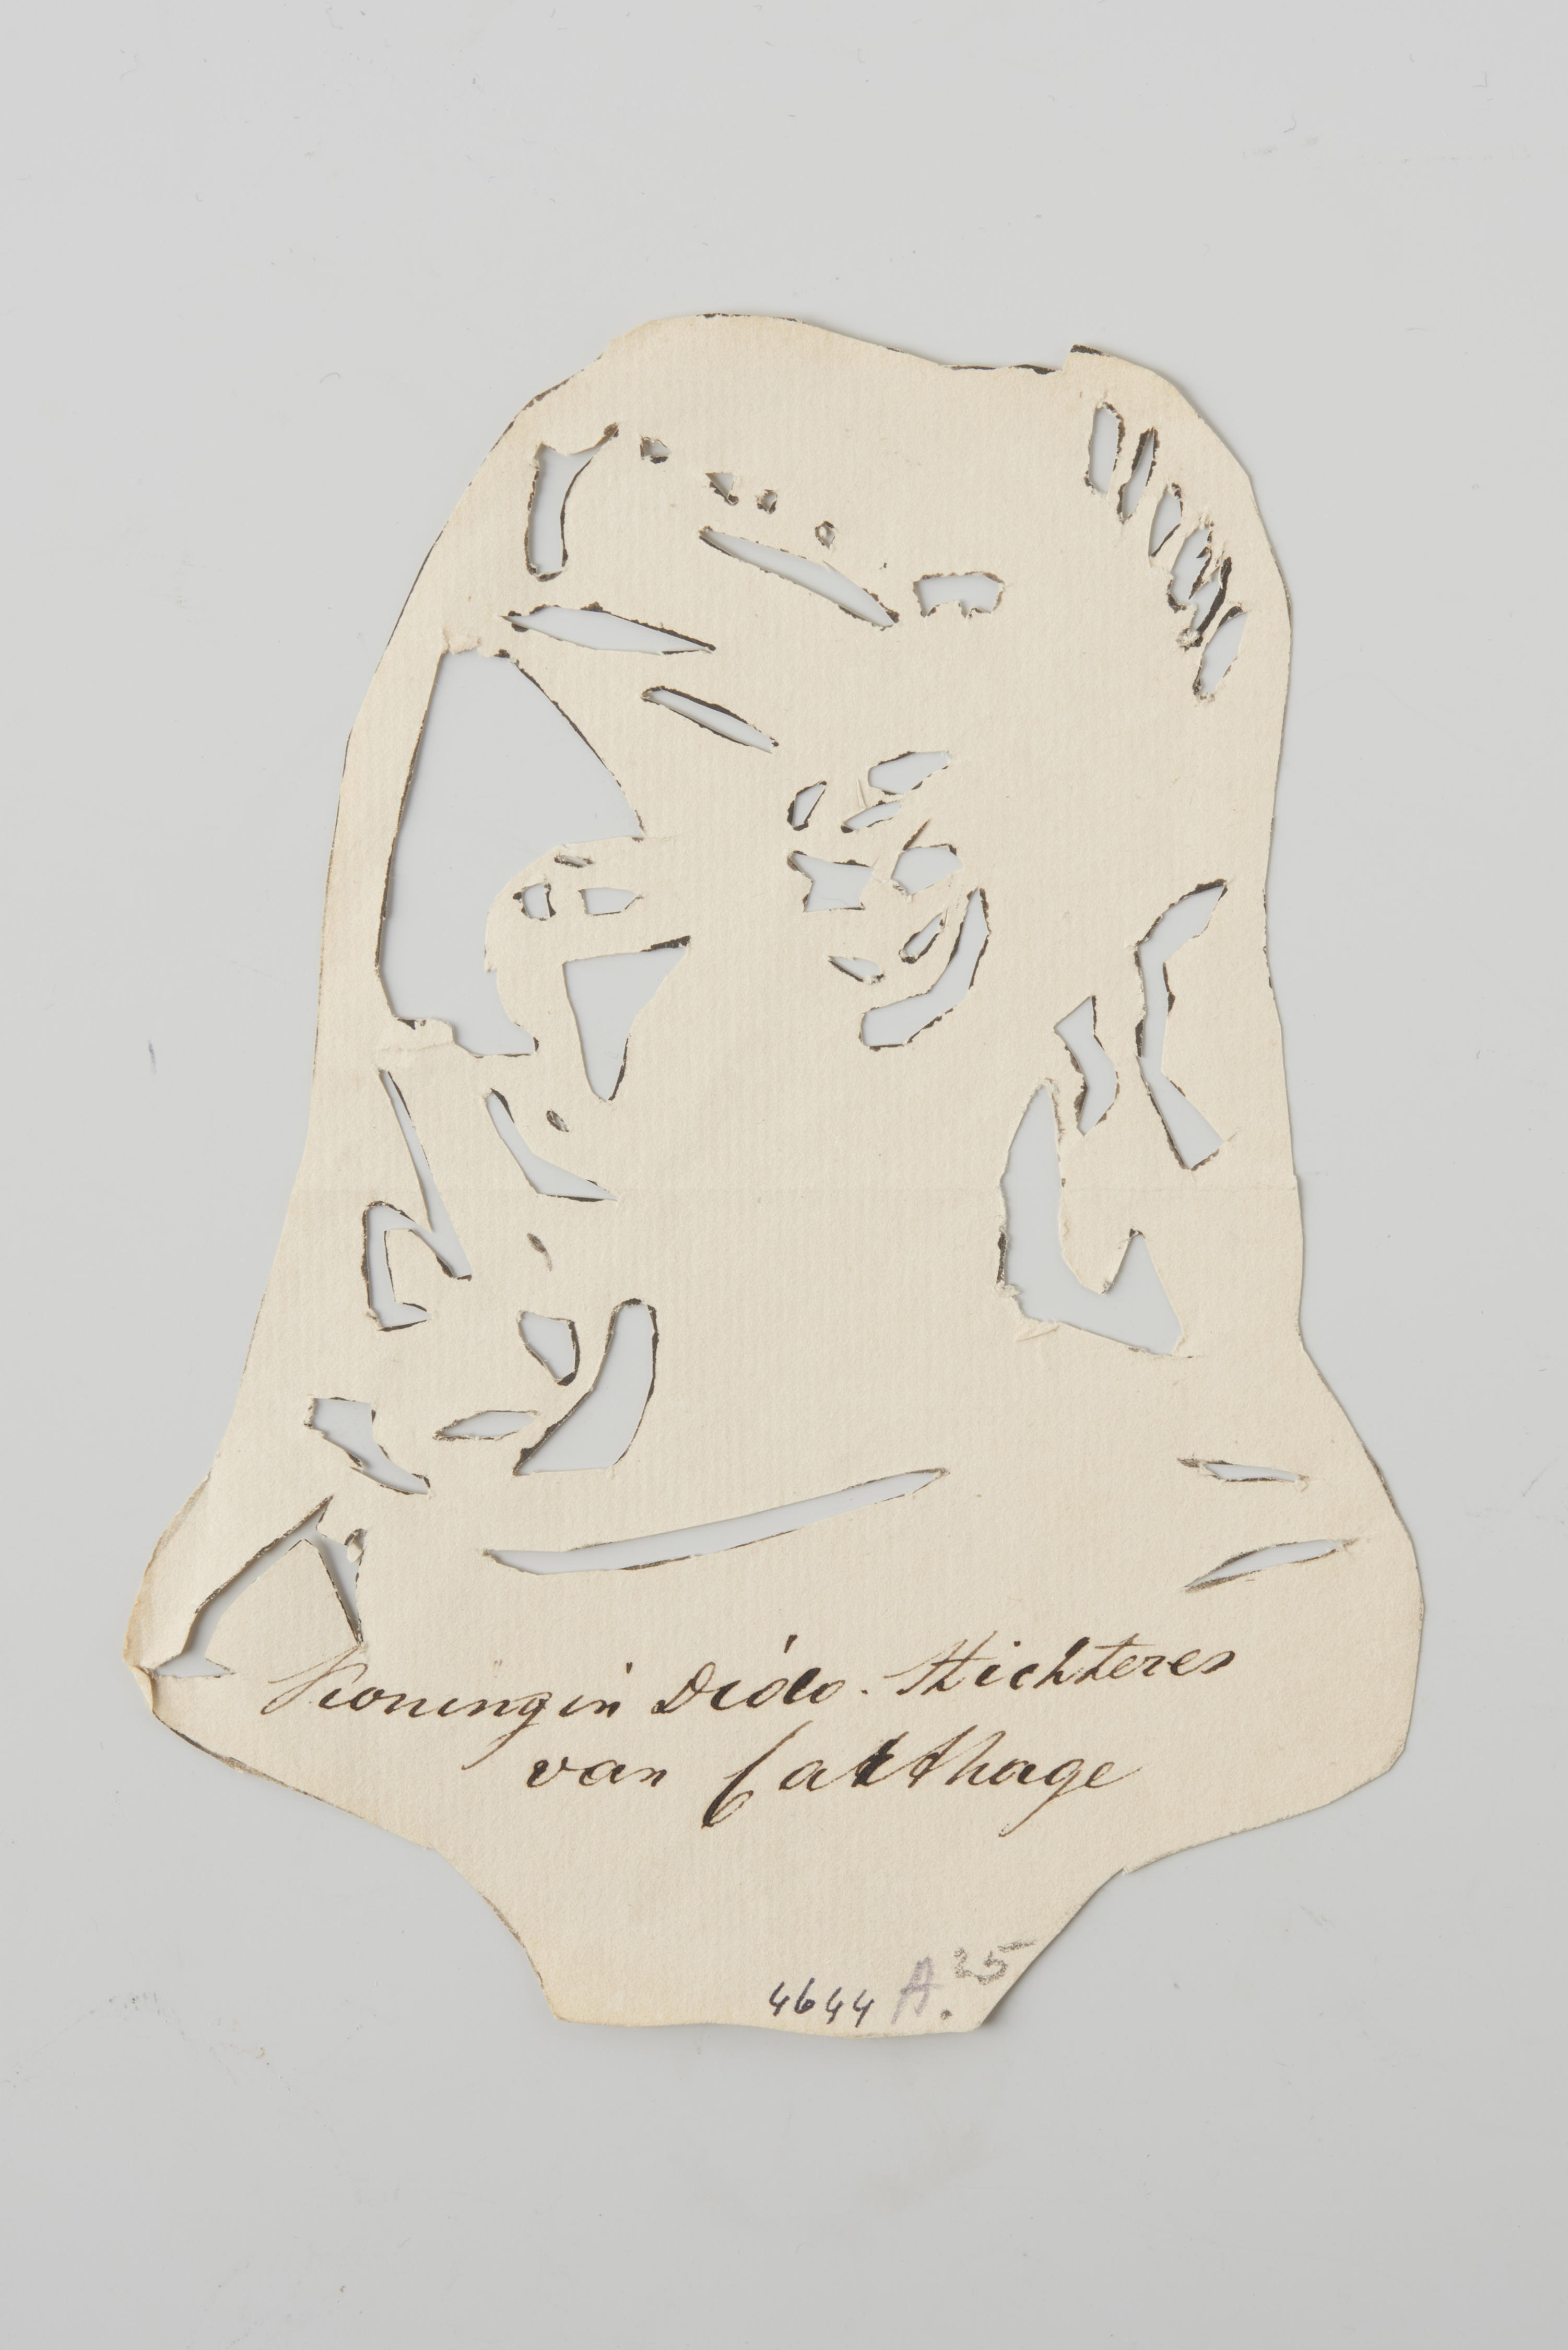 Koningin Dido. Stichteres
van Carthage
4644 A.25